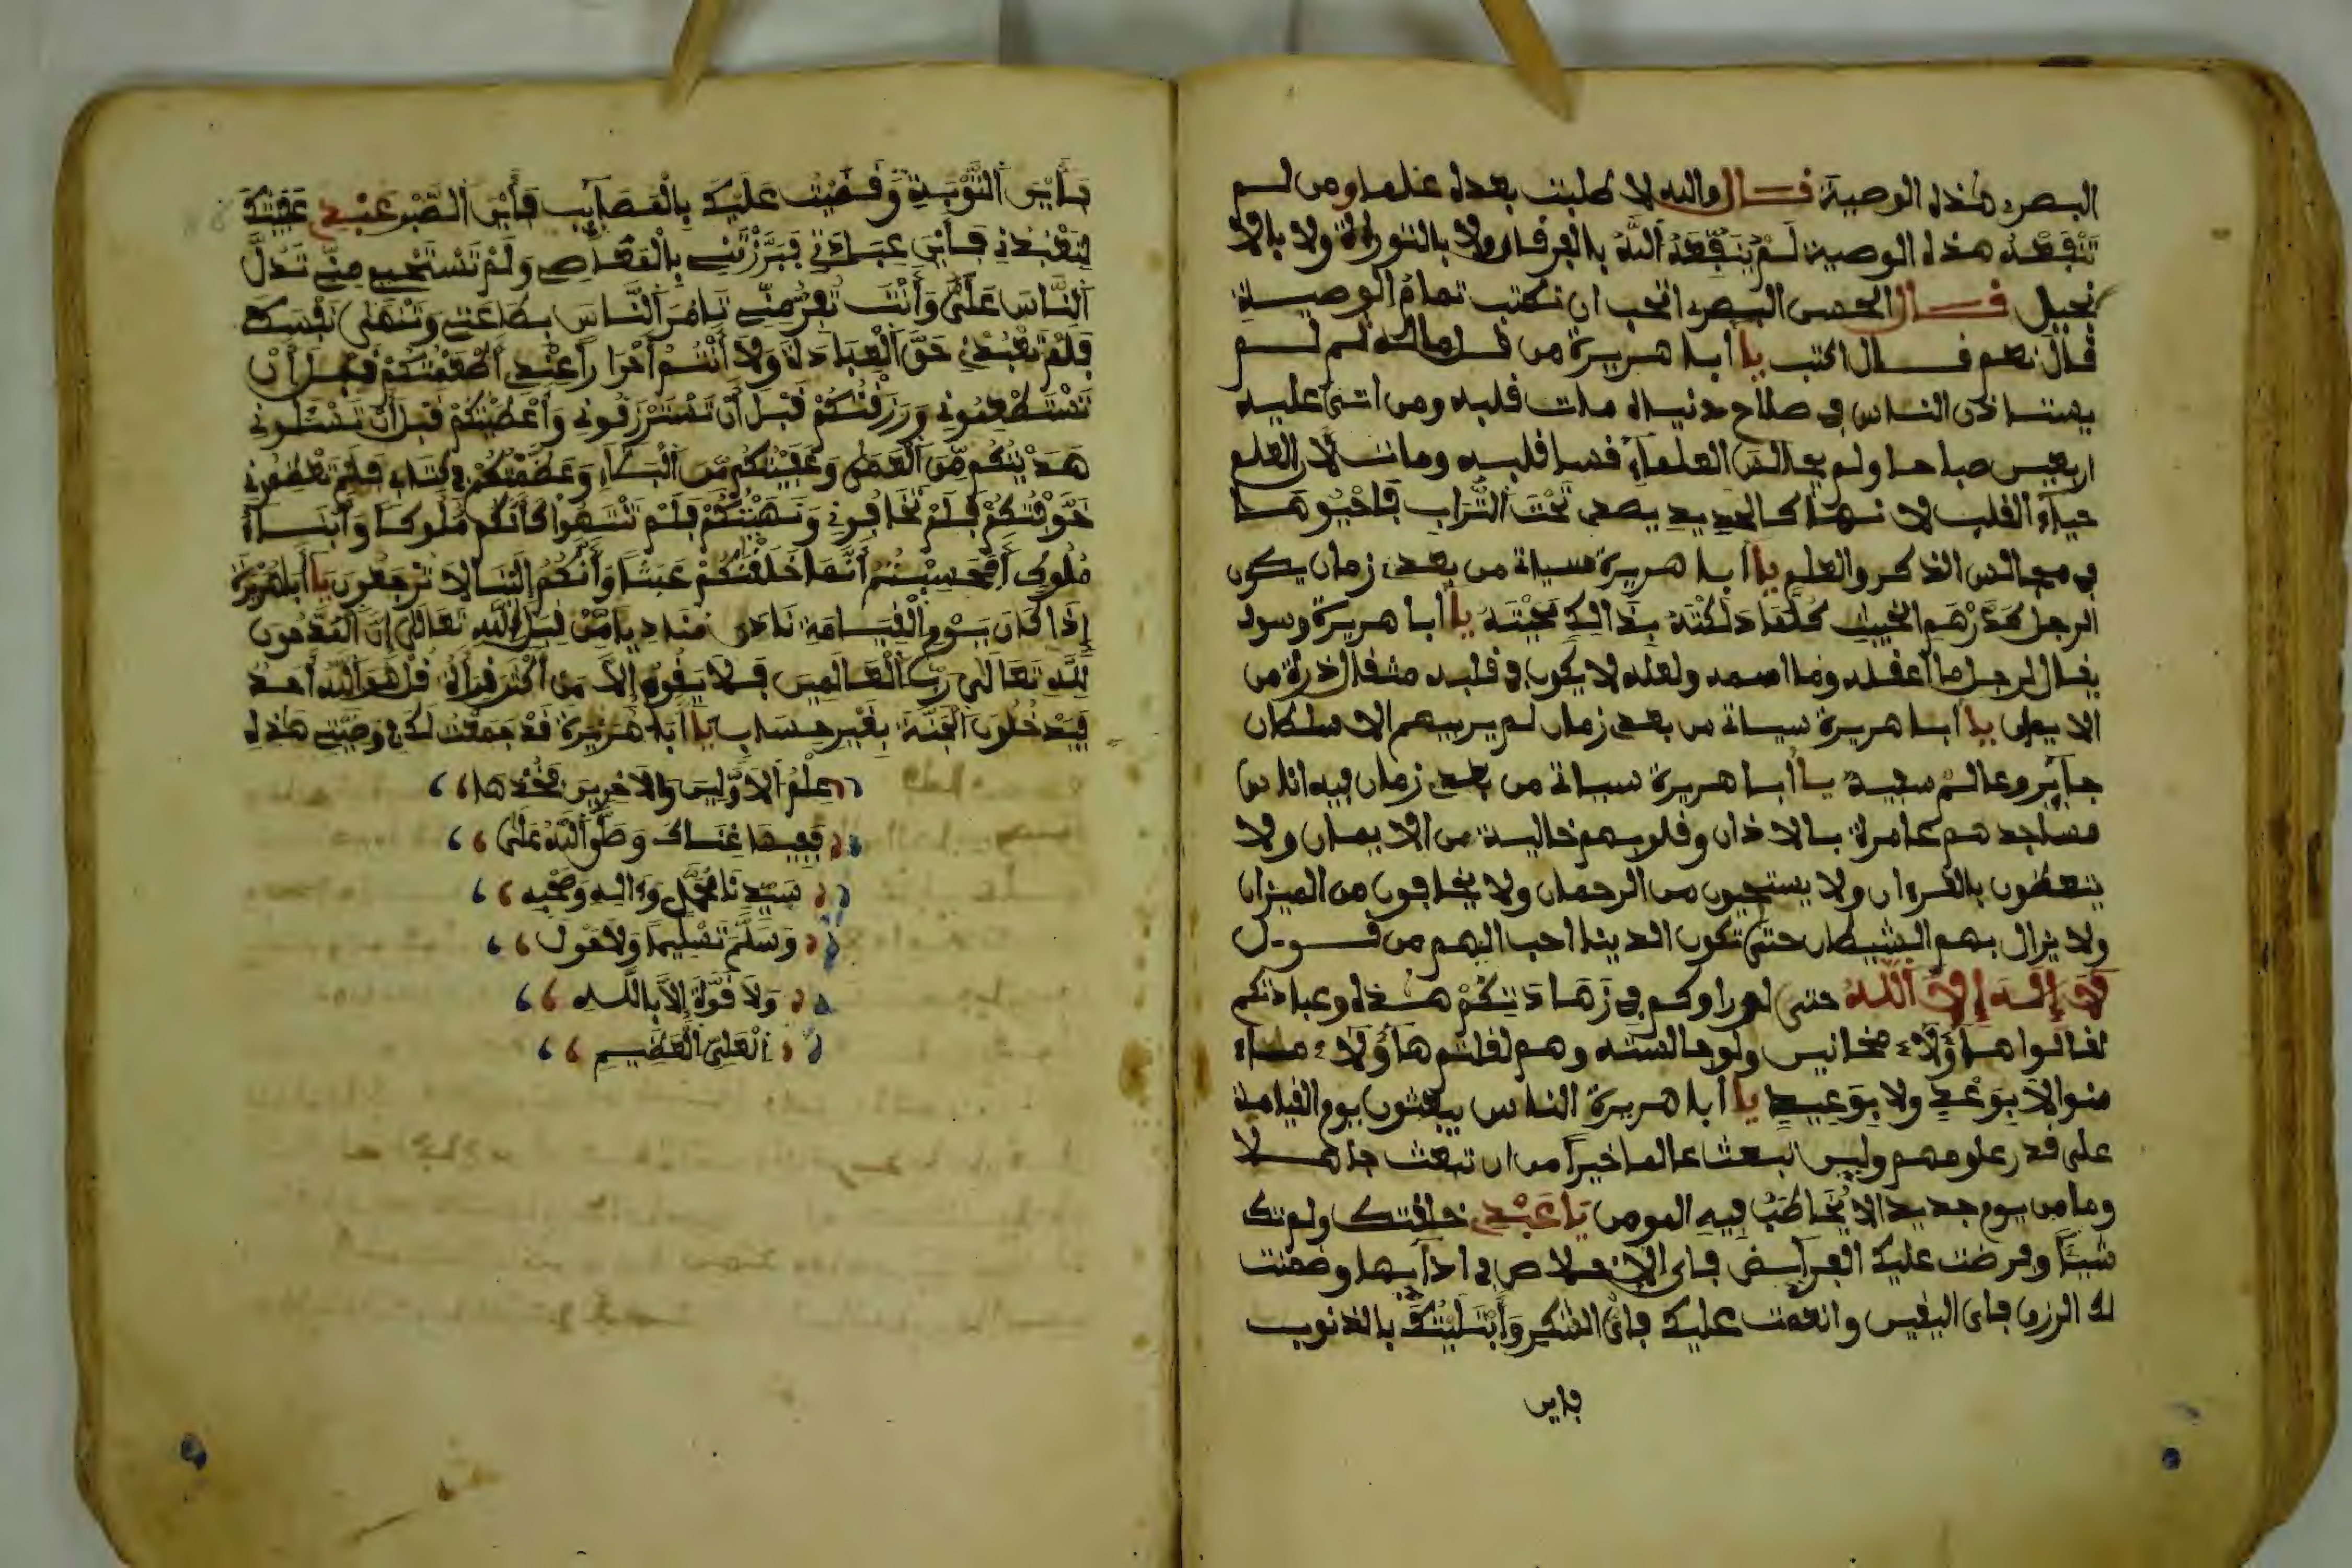 البصرى هذه الوصية فقال والله لا طلبت بعده علما ومن لم
تنفعه هذه الوصية لم ينفعه الله بالفرقان ولا بالتوراة ولا بالا
نجيل قال الحسن البصرى اتحب ان نكتب تمام الوصية
قال نعم قال اكتب يا أبا هريرة من
الناس في صلاح دنياه مات قلبه ومن اتى عليه
اربعين صباحا ولم يجالس العلماء قسا قلبه ومات لان العلم
حياة القلب لانها كالحديد يصدى تحت التراب فاحيوها
في مجالس الذكر والعلم يا أبا هريرة سياتى من بعدى زمان يكون
الرجل كدرهم الخبيث كلما دلكته بذالك يا أبا هريرة وسوف
يقال لرجل ما أعقله وما اسمه ولعله لا يكون في قلبه مثقال ذرة من
الايمان يا أبا هريرة سياتى من بعدى زمان لم يريبهم الا سلطان
جآير وعالم سفيه يا أبا هريرة سياتى من بعدى زمان فيه اناس
مساجدهم عامرة بالاذان وقلوبهم خالية من الايمان ولا
يتعظون بالقرءان ولا يستحيون من الرحمان ولا يخافون من الميزان
ولا يزال بهم الشيطان حتى تكون الدينا احب اليهم من قول
لآ إله إلا الله حتى لو راوكم في زهادتكم هذه وعبادتكم
لقالوا هاؤلآء مجانيس ولوحا لستم وهم لقلتم هاؤلاء ماء
منوا الا بوعد ولا بوعيد يا أبا هريرة الناس يبعثون يوم القيامة
على قدر علومهم وليس تبعث عالما خيرا من ان تبعث جاهلا
وما من يوم جديد الا يخاطب فيه المومن يا عبدى خلقتك ولم تك
شيئا وفرضت عليك الفرآيض فاين الاخلاص في ادآيها وضمنت
لك الرزق فاين اليقين وانعمت عليك فاين الشكر وابتليتك بالذنوب
فاين
فأين التوبة وقضيت عليك بالمصآيب فأين الصبر عبدي عفيتك
لتعبدني فأين عبادتي فبرزتني بالمعاصي ولم تستحيى مني تدل
الناس على وأنت تفر مني تامر الناس بطاعتي وتنهى نفسك
فلم تعبدني حق العبادة ولا أنتم أحرارا عندي أطعمتكم قبل أن
تستطعموني ورزقتكم قبل أن تسترزقوني وأعطيتكم قبل أن تسئلوني
هديتكم من العمى وعفيتكم من البلاء وعظتكم في كتابي فلم تعظوني
خوفتكم فلم تخافوني ونهيتكم فلم تنتهوا كأنكم ملوكا وأبناء
ملوك أفحسبتم أنما خلقنكم عبثا وأنكم إلينا لا ترجعون يا أبا هريرة
إذا كان يوم القيامة نادى مناد يا من قبل الله تعالى إن المدحون
لله تعالى رب العالمين فلا يقوم إلا من أكثر قراءة قل هو الله أحد
فيدخلون الجنة بغير حساب يا أبا هريرة قد جمعت لك في وصيتي هذه
علم الأولين والآخرين فخذها
ففيها غناك وصلى الله على
سيدنا محمد وءاله وصحبه
وسلم تسليما ولا حول
ولا قوة إلا بالله
العلى العظيم